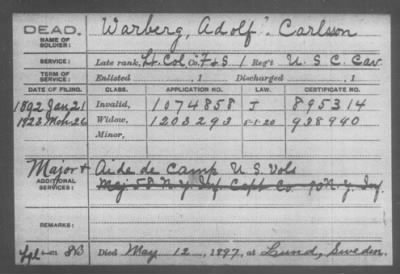 DEAD.
NAME OF SOLDIER:
Warberg, Adolf Carlson
SERVICE:
Late rank, Lt. Col. Co. F & S, 1 Reg't U. S. C. Cav.
TERM OF SERVICE:
Enlisted , 1 Discharged , 1
DATE OF FILING. CLASS. APPLICATION NO. LAW. CERTIFICATE NO.
1892 Jan 21 Invalid, 1074858 I 895314
1923 Nov. 26 Widow, 1203293 5-1-20 938940
Minor,
ADDITIONAL SERVICES:
Major & Aide de Camp U S Vols
Maj. 53 N. Y. Inf. Capt Co. N. Y. Inf.
REMARKS:
Died May 12, 1897, at Lund, Sweden.